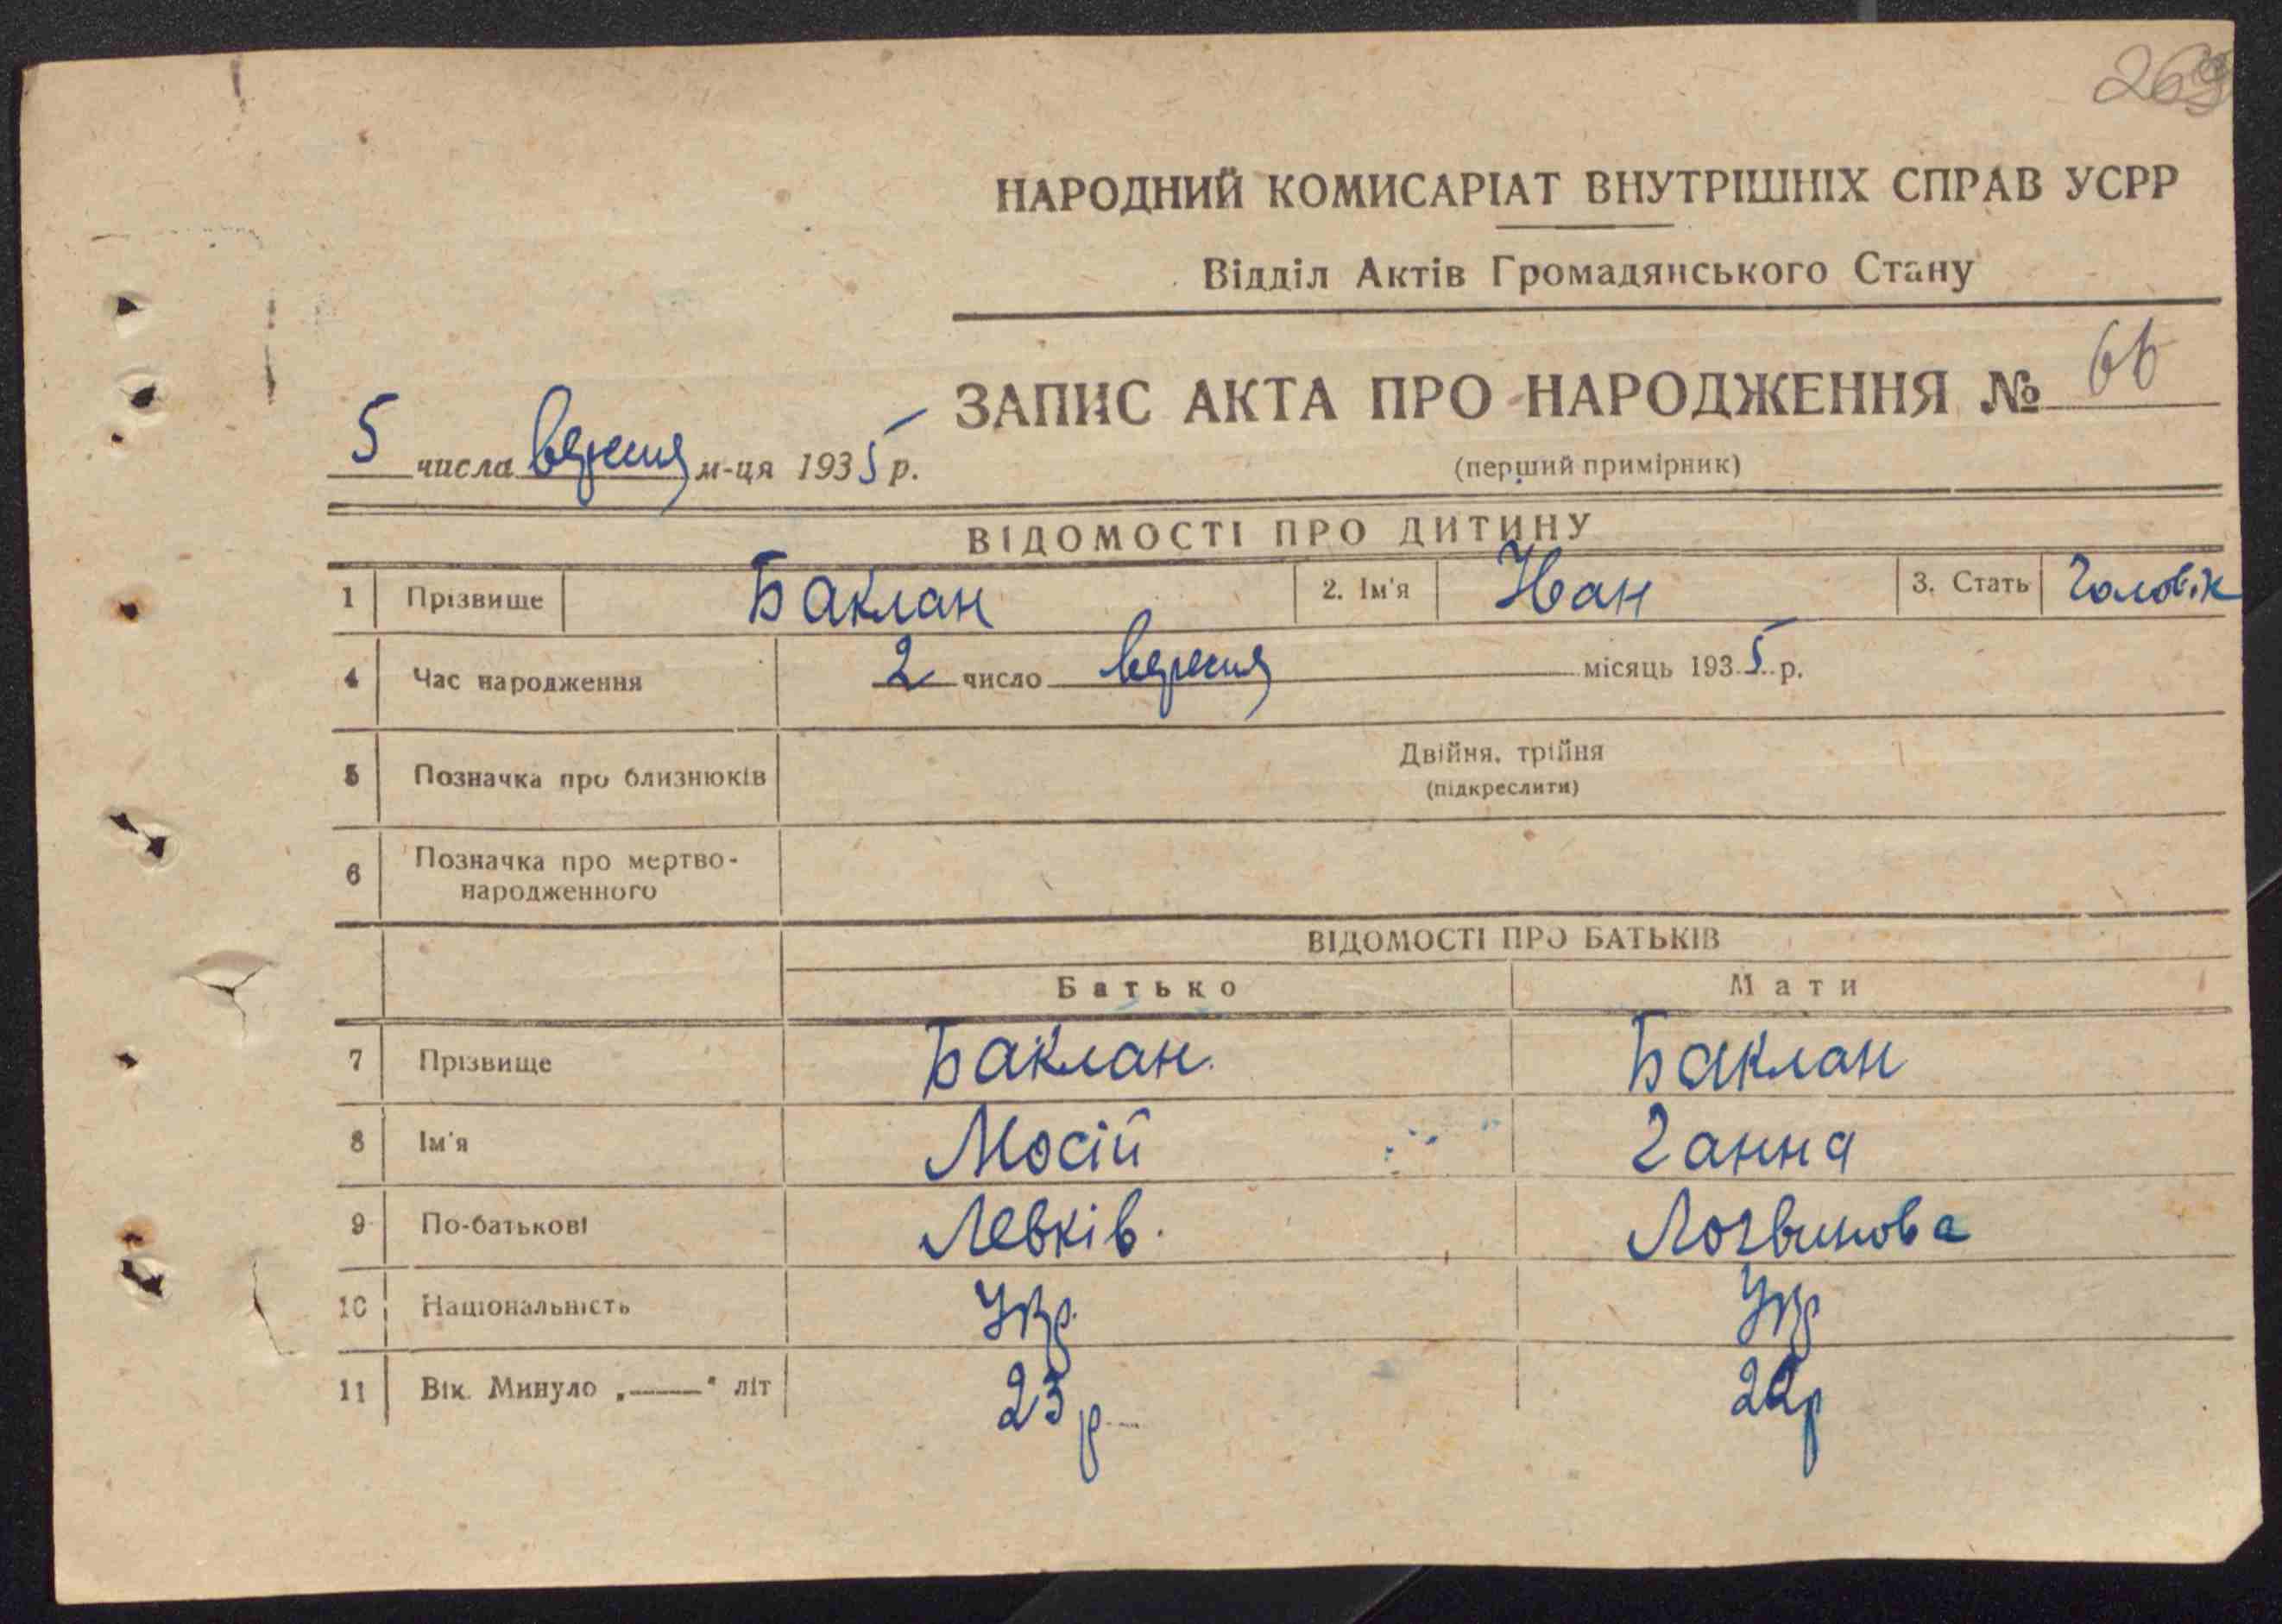 269
НАРОДНИЙ КОМИСАРІАТ ВНУТРІШНІХ СПРАВ УСРР
Відділ Актів Громадянського Стану
ЗАПИС АКТА ПРО НАРОДЖЕННЯ № 66
5 числа вересня м-ця 1935 р.
(перший примірник)
ВІДОМОСТІ ПРО ДИТИНУ
1 Прізвище Баклан 2. Ім'я Иван 3. Стать Чоловік
4 Час народження 2 число вересня місяць 1935 р.
5 Позначка про близнюків Двійня, трійня
(підкреслити)
6 Позначка про мертво-
народженного
ВІДОМОСТІ ПРО БАТЬКІВ
Батько Мати
7 Прізвище Баклан Баклан
8 Ім'я Мосій Ганна
9 По-батькові Левків. Логвинова
10 Національність Укр. Укр
11 Вік. Минуло „——" літ 23 р 22р